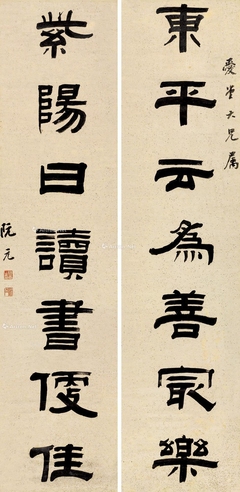 東平云為善最樂
愛堂大兄屬
紫陽曰讀書便佳
阮元